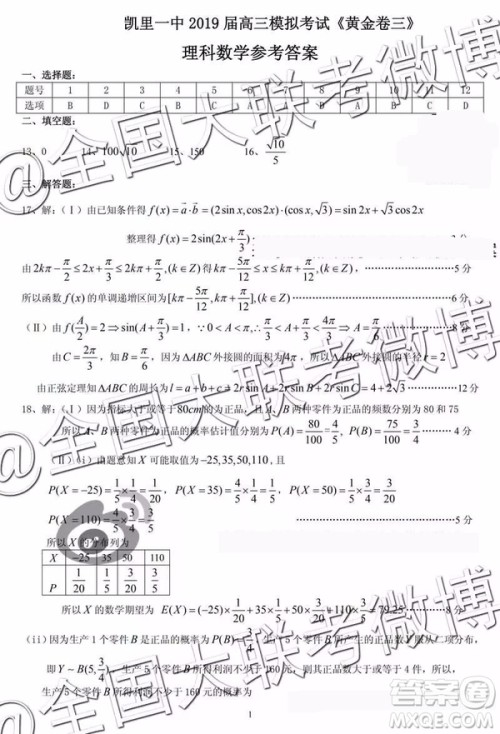 凯里一中 2019 届高三模拟考试《黄金卷三》
理科数学参考答案
一、选择题:
题号 1 2 3 4 5 6 7 8 9 10 11 12
选项 B D C B A C D
二、填空题:
13、0 14、100√10 15、150 16、√10/5
三、解答题:
17、解:(Ⅰ)由已知条件得 f(x)=a·b=(2sin x,cos2x)·(cos x,√3)=sin2x+√3cos2x
整理得 f(x)=2sin(2x+π/3)
由 2kπ-π/2≤2x+π/3≤2kπ+π/2,(k∈Z) 得 kπ-5π/12≤x≤kπ+π/12,(k∈Z), 5 分
所以函数 f(x) 的单调递增区间为[kπ-5π/12,kπ+π/12],(k∈Z) 6 分
(Ⅱ)由 f(A/2)=2⇒sin(A+π/3)=1,∵0<A<π,∴A+π/3=π/2⇒A=π/6 8 分
由 C=2π/3,知 B=π/6,因为 ΔABC 外接圆的面积为 4π,所以 ΔABC 外接圆的半径 r=2
由正弦定理知 ΔABC 的周长为 l=a+b+c=2r sin A+2r sin B+2r sin C=4+2√3 12 分
18、解:(Ⅰ)因为指标大于或等于 80cm 的为正品,且 A、B 两种零件为正品的频数分别为 80 和 75
所以 A、B 两种零件为正品的概率估计值分别为 P(A)=80/100=4/5,P(B)=75/100=3/4
(Ⅱ)(i)由题意知 X 可能取值为 -25,35,50,110,且
P(X=-25)=1/5×1/4=1/20 P(X=35)=1/5×3/4 P(X=50)=4/5×1/4=1/5
P(X=110)=4/5×3/4=3/5 5 分
所以 X 的分布列为
X -25 35 50 110
P 1/20 3/20 1/5 3/5
所以 X 的数学期望为 E(X)=(-25)×1/20+35×3/20+50×1/5+110×3/5=79.25 8 分
(ii)因为生产 1 个零件 B 是正品的概率为 P(B)=3/4 生产 5 个零件 B 所产生的正品数 Y 服从二项分布,
即 Y~B(5,3/4),生产 5 个零件 B 所得利润不少于 160 元,则其正品数大于或等于四件,所以,
生产 5 个零件 B 所得利润不少于 160 元的概率为
1
@全国大联考微博
@全国大联考微博
@全国大联考微博
答案圈